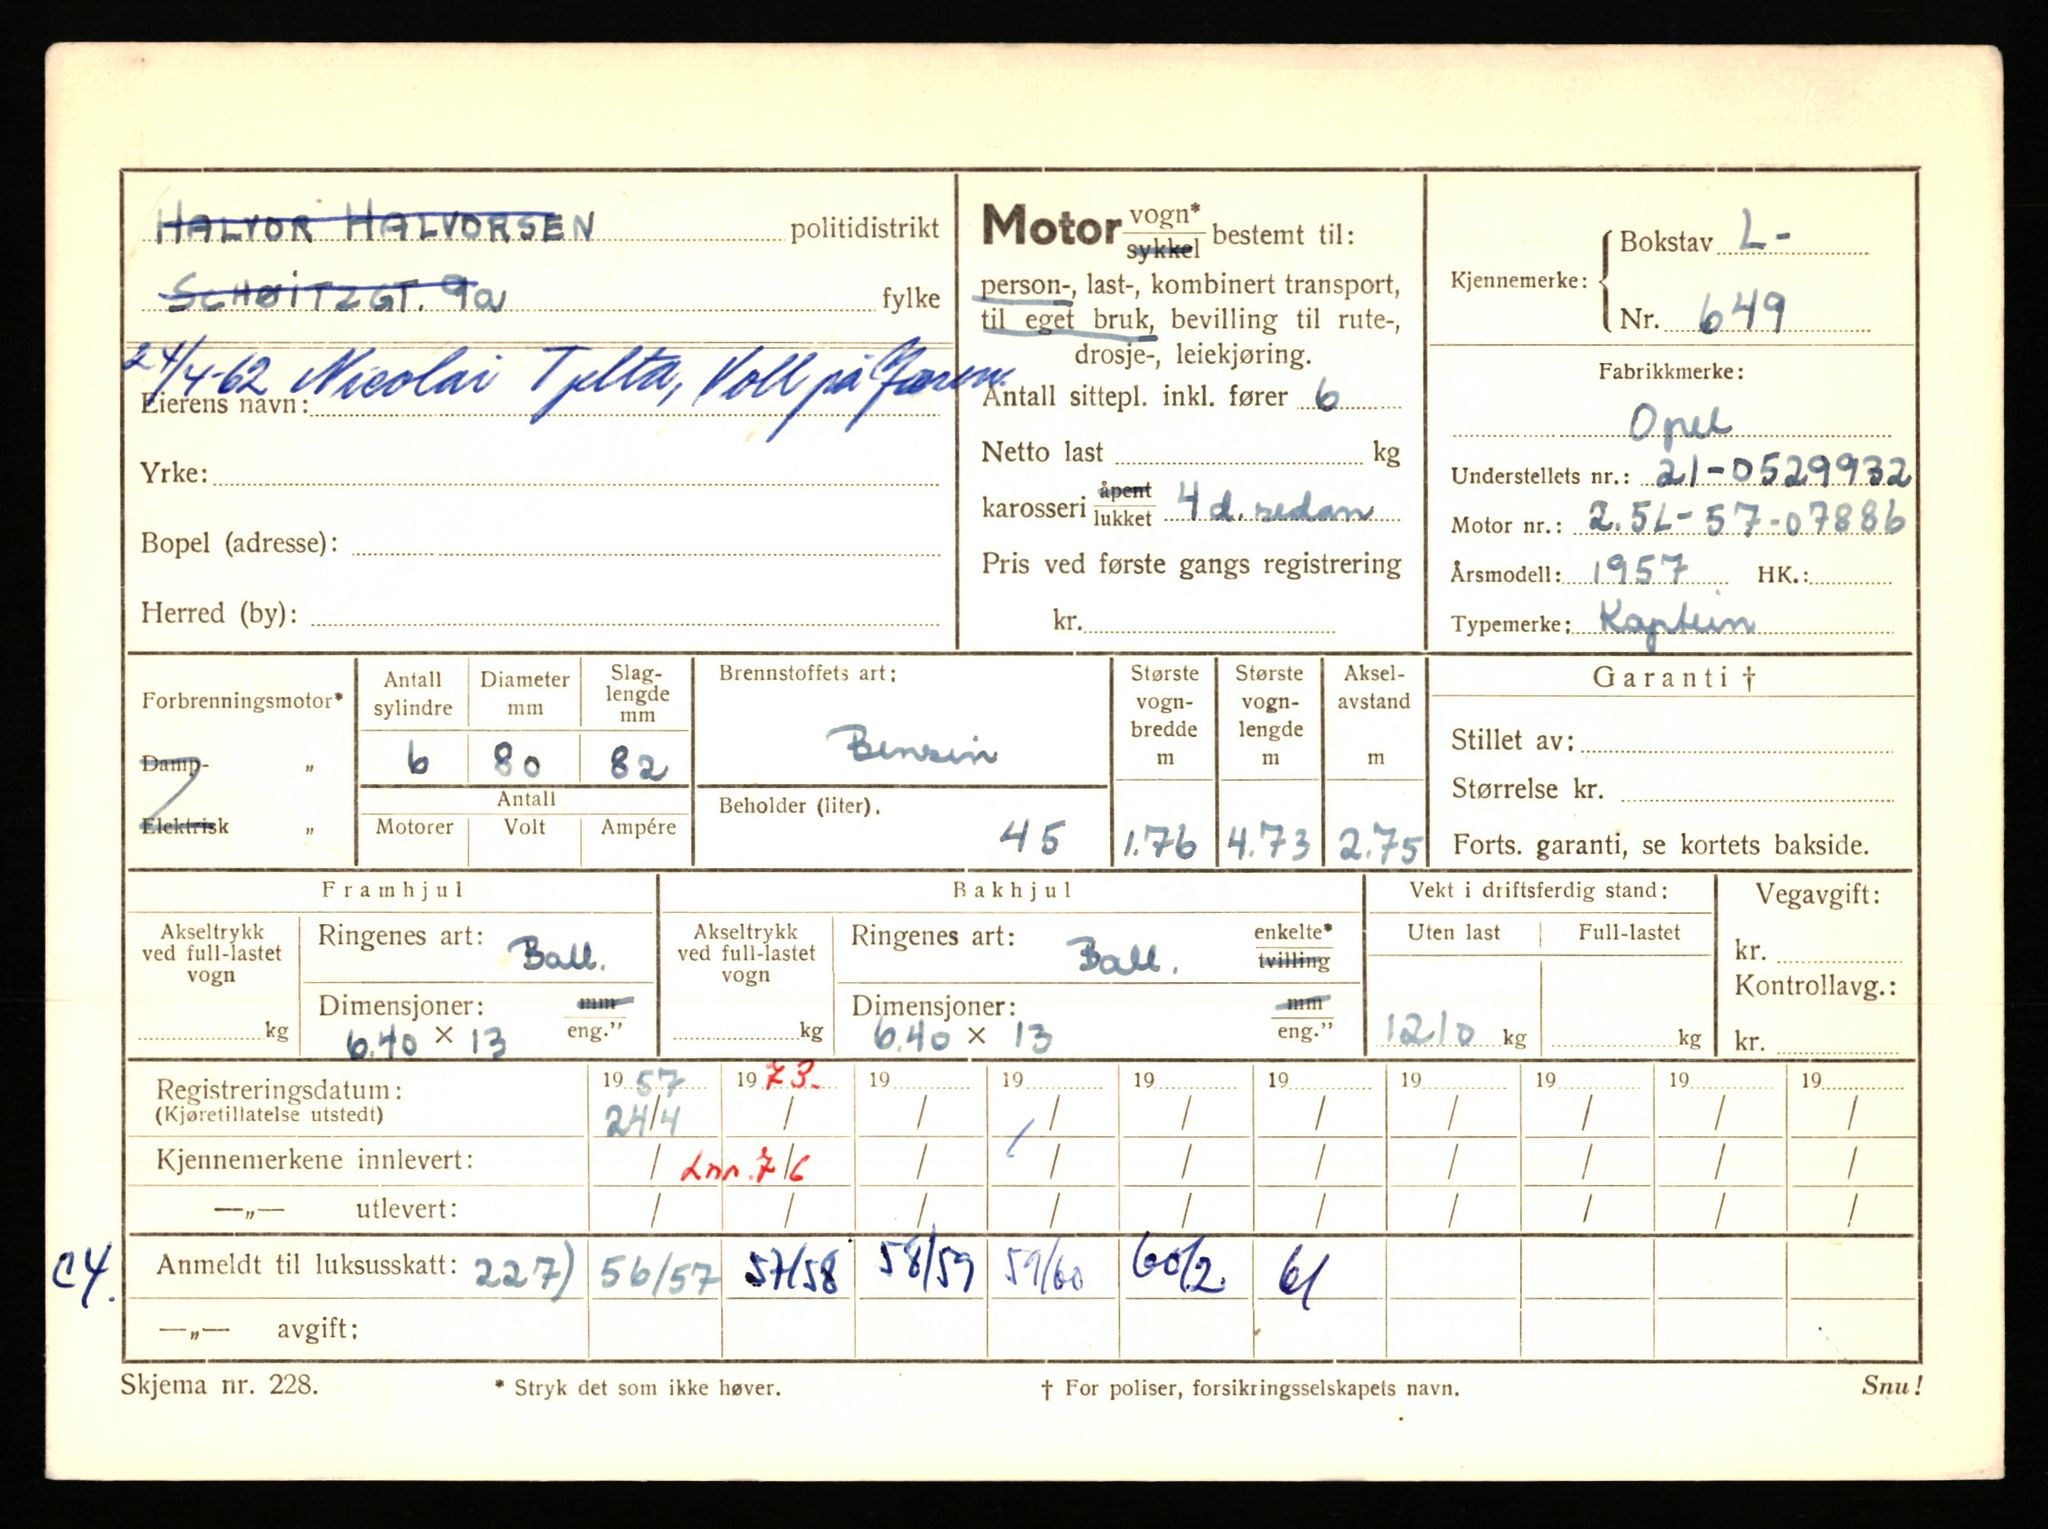 HALVOR HALVORSEN politidistrikt
SCHØITZGT. 9a fylke
24/4-62 Nicolai Tjelta, Voll på Jæren.
Eierens navn:
Yrke:
Bopel (adresse):
Herred (by):
Motor vogn* sykkel bestemt til:
person-, last-, kombinert transport,
til eget bruk, bevilling til rute-,
drosje-, leiekjøring.
Antall sittepl. inkl. fører 6
Netto last kg
karosseri åpent lukket 4 d. sedan
Pris ved første gangs registrering
kr.
Kjennemerke: Bokstav L-
Nr. 649
Fabrikkmerke:
Opel
Understellets nr.: 21-0529932
Motor nr.: 2.5L-57-07886
Årsmodell: 1957 HK.:
Typemerke: Kaptein
Forbrenningsmotor*
Damp- „
Elektrisk „
Antall sylindre Diameter mm Slag-lengde mm
6 80 82
Antall
Motorer Volt Ampére
Brennstoffets art:
Bensin
Beholder (liter).
45
Største vogn-bredde m
1.76
Største vogn-lengde m
4.73
Aksel-avstand m
2.75
Garanti †
Stillet av:
Størrelse kr.
Forts. garanti, se kortets bakside.
Framhjul
Akseltrykk ved full-lastet vogn
kg
Ringenes art: Ball.
Dimensjoner: mm eng.”
6.40 × 13
Bakhjul
Akseltrykk ved full-lastet vogn
kg
Ringenes art: Ball. enkelte* tvilling
Dimensjoner: mm eng.”
6.40 × 13
Vekt i driftsferdig stand:
Uten last Full-lastet
1210 kg kg
Vegavgift:
kr.
Kontrollavg.:
kr.
Registreringsdatum: 19 57 19 73. 19 19 19 19 19 19 19 19
(Kjøretillatelse utstedt) 24/4 / / / / / / / / /
Kjennemerkene innlevert: / Lnn. 7/6 / / / / / / / /
—„— utlevert: / / / / / / / / / /
C4. Anmeldt til luksusskatt: 227) 56/57 57/58 58/59 59/60 60/2. 61
—„— avgift:
Skjema nr. 228. * Stryk det som ikke høver. † For poliser, forsikringsselskapets navn. Snu!